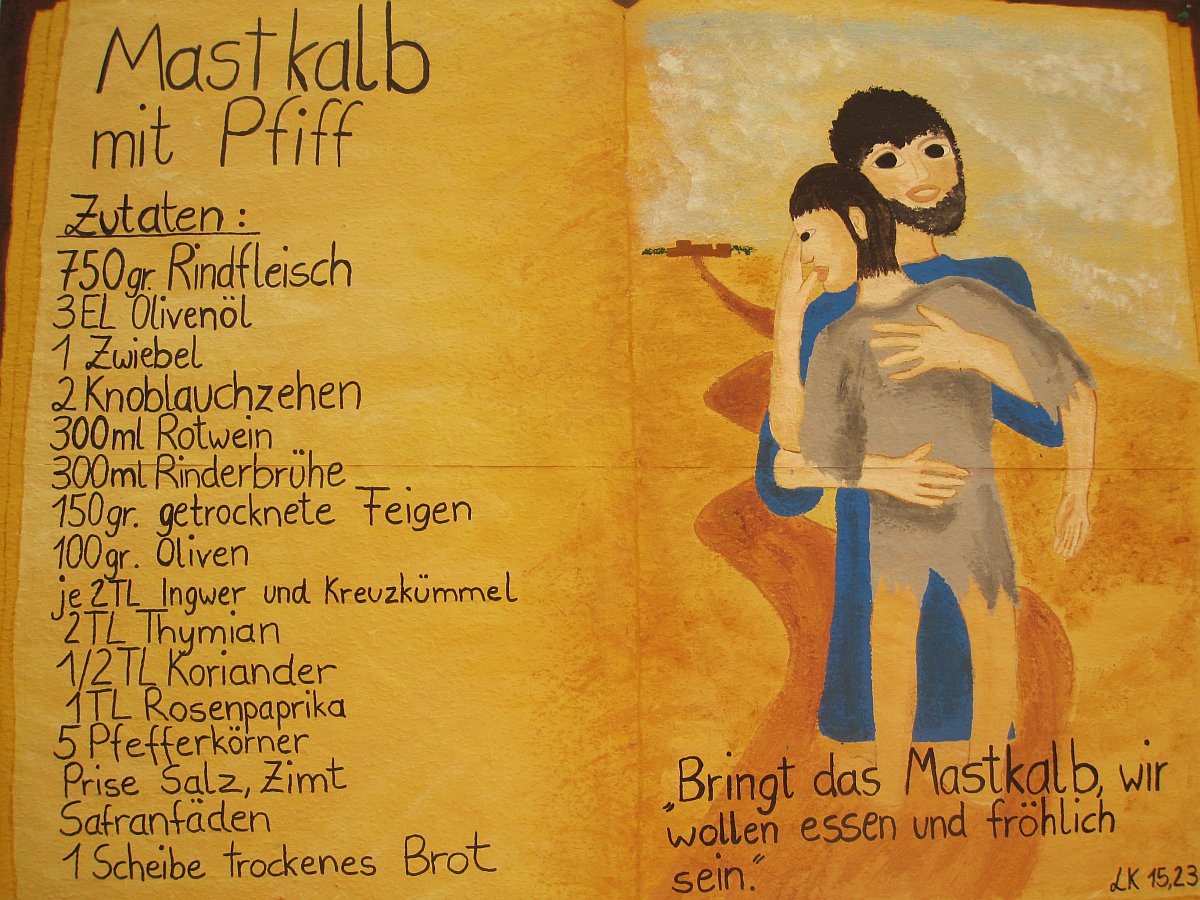 Mastkalb
mit Pfiff
Zutaten:
750gr. Rindfleisch
3EL Olivenöl
1 Zwiebel
2 Knoblauchzehen
300ml Rotwein
300ml Rinderbrühe
150gr. getrocknete Feigen
100gr. Oliven
je 2TL Ingwer und Kreuzkümmel
2TL Thymian
1/2TL Koriander
1TL Rosenpaprika
5 Pfefferkörner
Prise Salz, Zimt
Safranfäden
1 Scheibe trockenes Brot
„Bringt das Mastkalb, wir
wollen essen und fröhlich
sein.“
LK 15,23